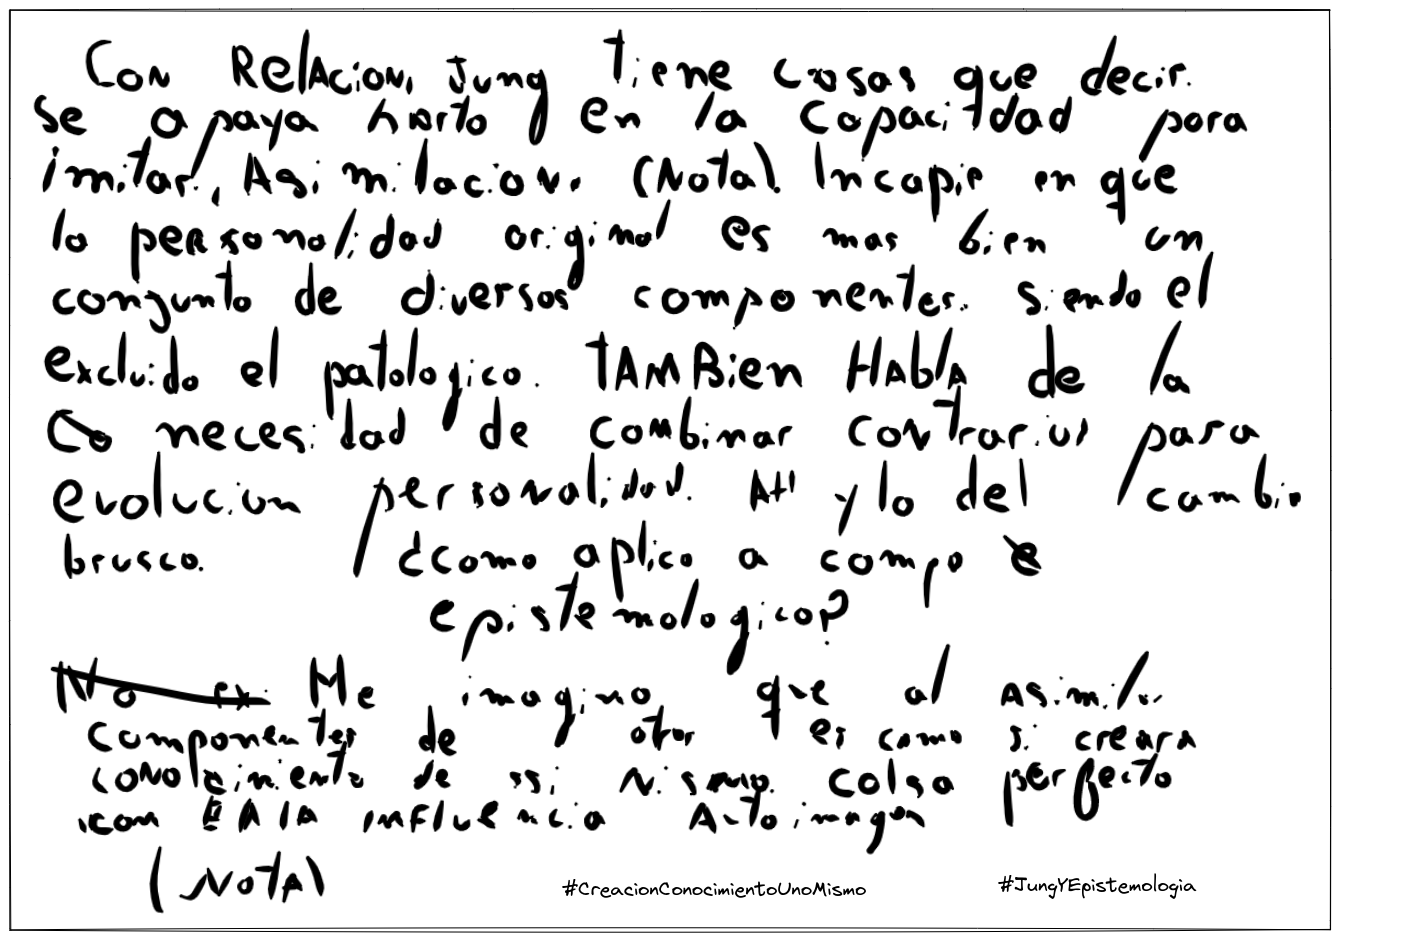 Con Relacion, Jung tiene cosas que decir.
Se apaya harto en la capacidad para
imitar, Asimilacion. (Nota). Incapie en que
la personalidad original es mas bien un
conjunto de diversos componentes. Siendo el
excluido el patologico. TAMBien HAblA de la
necesidad de combinar contrarios para
evolucion personalidad. y lo del cambio
brusco. ¿como aplico a campo
epistemologico?
Me imagino que al asimilar
componentes de otros es como si creara
conocimiento de si mismo. calsa perfecto
con la influencia Autoimagen
(NotA)
#CreacionConocimientoUnoMismo #JungYEpistemologia